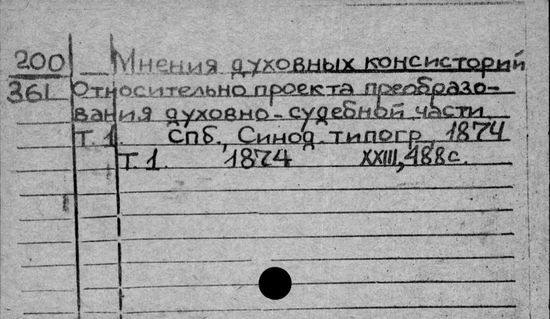 200 Мнения духовных консисторий
361 Относительно проекта преобразо-
вания духовно-судебной части
Т. 1. Спб., Синод. типогр., 1874
Т. 1. 1874 XXIII, 488 с.